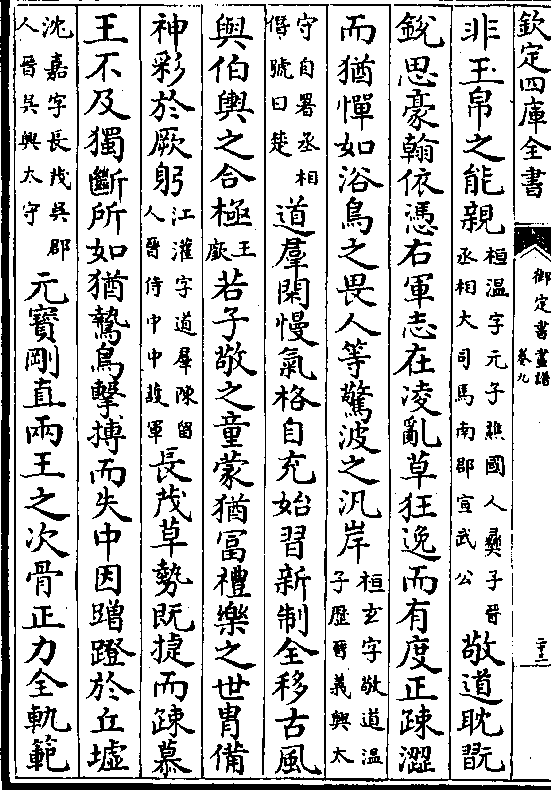 欽定四庫全書
御定書畫譜
卷九
二十二
非玉帛之能親桓溫字元子譙國人彝子晉丞相大司馬南郡宣武公敬道耽翫
銳思豪翰依憑右軍志在凌亂草狂逸而有度正疎澀
而猶憚如浴鳥之畏人等驚波之汎岸桓玄字敬道溫子歷晉義興太
守自署丞相僭號曰楚道羣閑慢氣格自充始習新制全移古風
與伯輿之合極王廞若子敬之童蒙猶冨禮樂之世胄備
神彩於厥躬江灌字道羣陳留人晉侍中中護軍長茂草勢既捷而疎慕
王不及獨斷所如猶鷙鳥擊搏而失中因蹭蹬於丘墟
沈嘉字長茂吳郡人晉吳興太守元寳剛直兩王之次骨正力全軌範